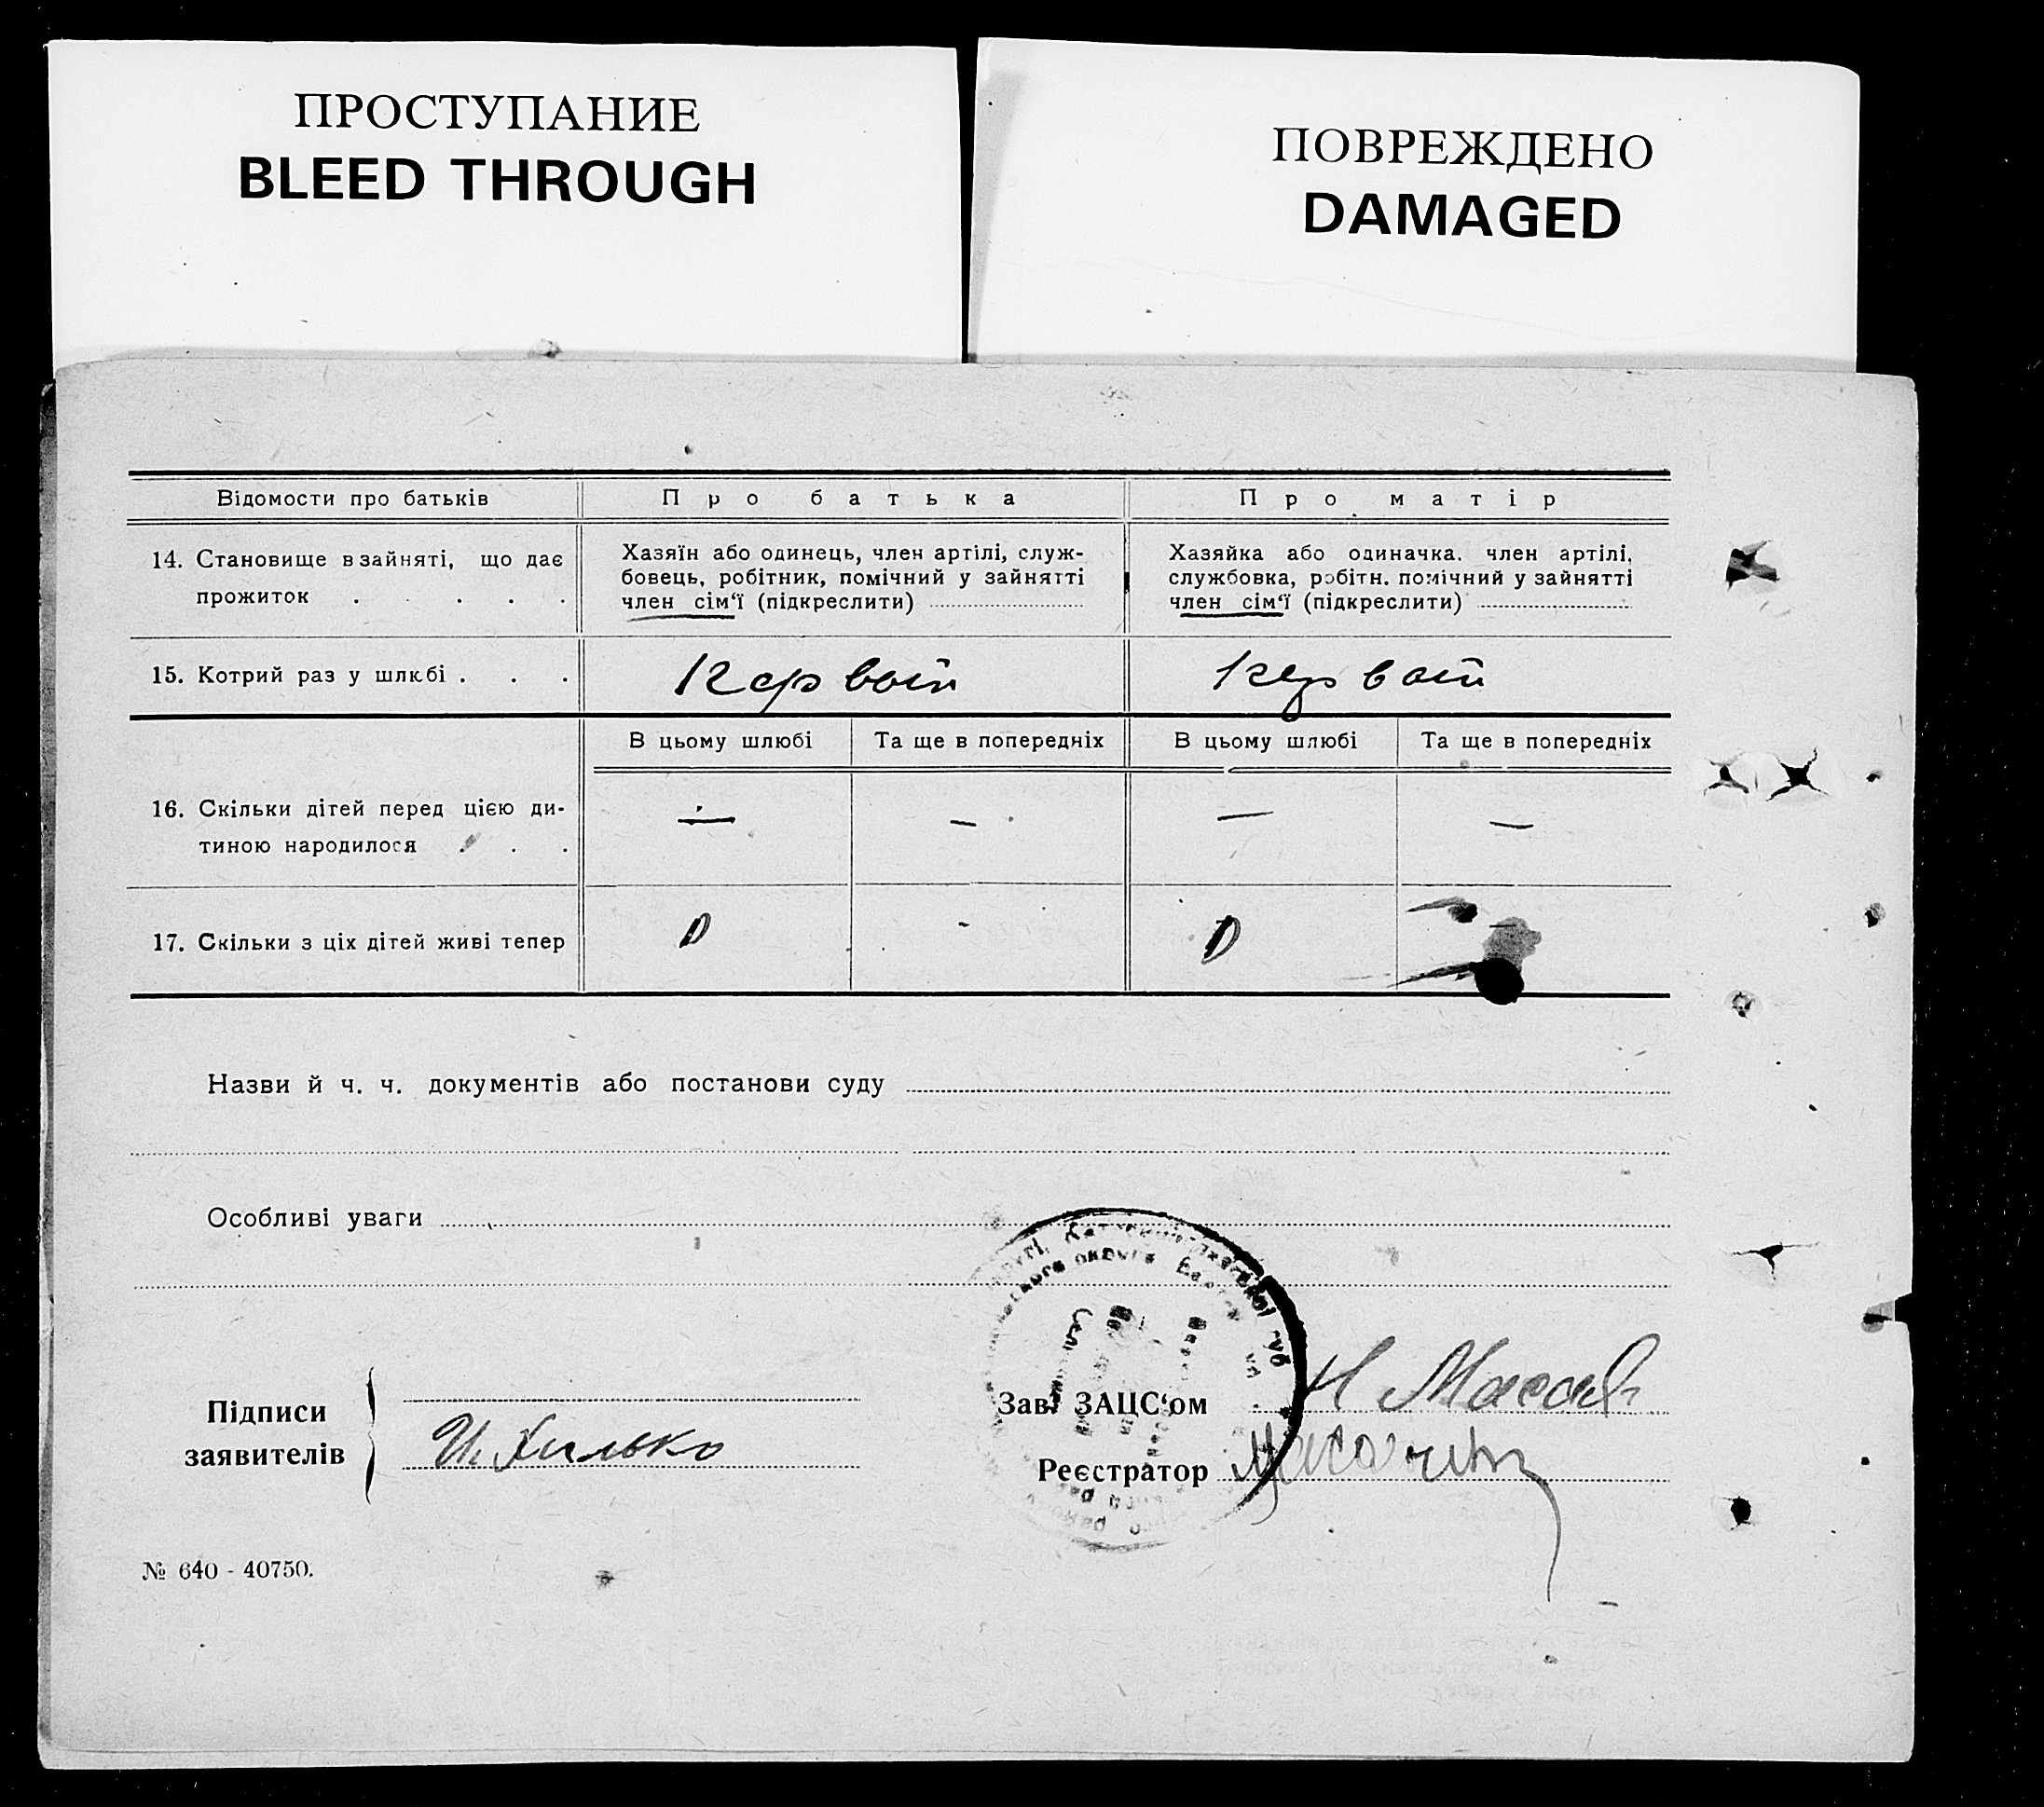 ПРОСТУПАНИЕ
BLEED THROUGH
ПОВРЕЖДЕНО
DAMAGED
Відомости про батьків
Про батька
Про матір
14. Становище в зайняті, що дає
прожиток . . . . .
Хазяїн або одинець, член артілі, служ-
бовець, робітник, помічний у зайнятті
член сім‘ї (підкреслити)
Хазяйка або одиначка, член артілі,
службовка, робітн. помічний у зайнятті
член сім‘ї (підкреслити)
15. Котрий раз у шлюбі . . .
Первой
Первой
В цьому шлюбі
Та ще в попередніх
В цьому шлюбі
Та ще в попередніх
16. Скільки дітей перед цією ди-
тиною народилося . . .
— — — —
17. Скільки з ціх дітей живі тепер
0 - 0 -
Назви й ч. ч. документів або постанови суду
Особливі уваги
Підписи
заявителів
И. Хилько
Зав. ЗАЦС‘ом
Реєстратор
№ 640 - 40750.